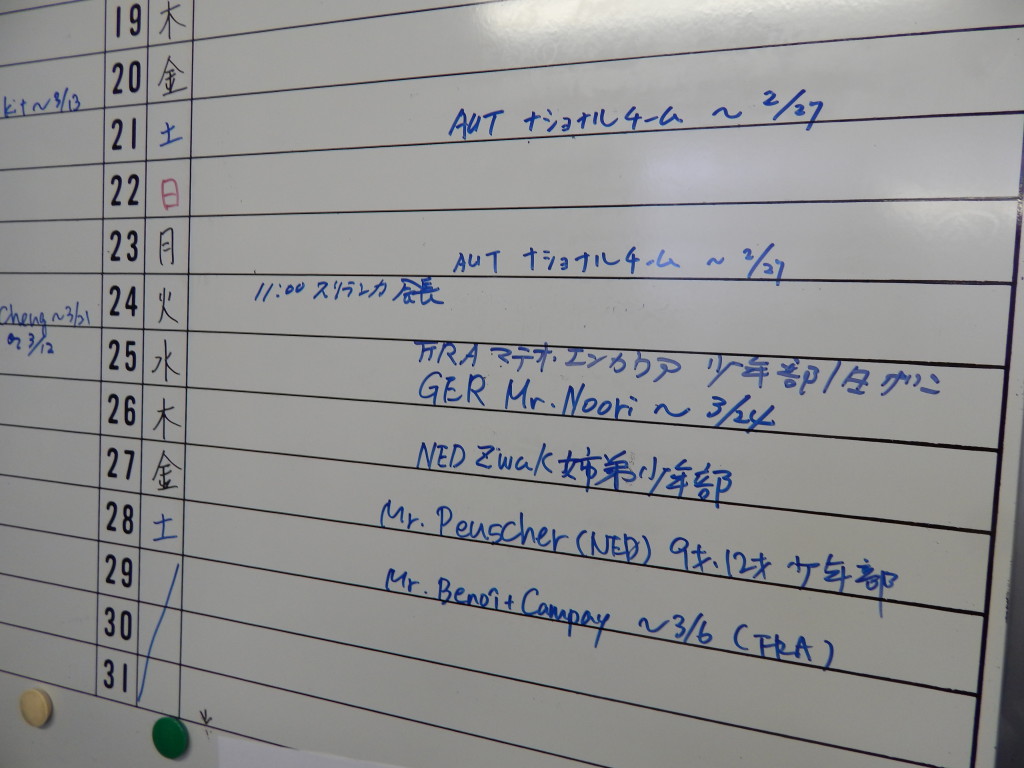 19 木
20 金
kit～3/13
21 土 AUT ナショナルチーム ～ 2/27
22 日
23 月 AUT ナショナルチーム ～ 2/27
24 火 11:00 スリランカ 会長
Cheng ～3/21
or 3/12
25 水 FRA マテオ・エンカウア 少年部
26 木 GER Mr. Noori ～ 3/24
27 金 NED Zwak 姉弟 少年部
28 土 Mr. Peuscher (NED) 9才, 12才 少年部
29 Mr. Benoit Campay ～3/6 (FRA)
30
31